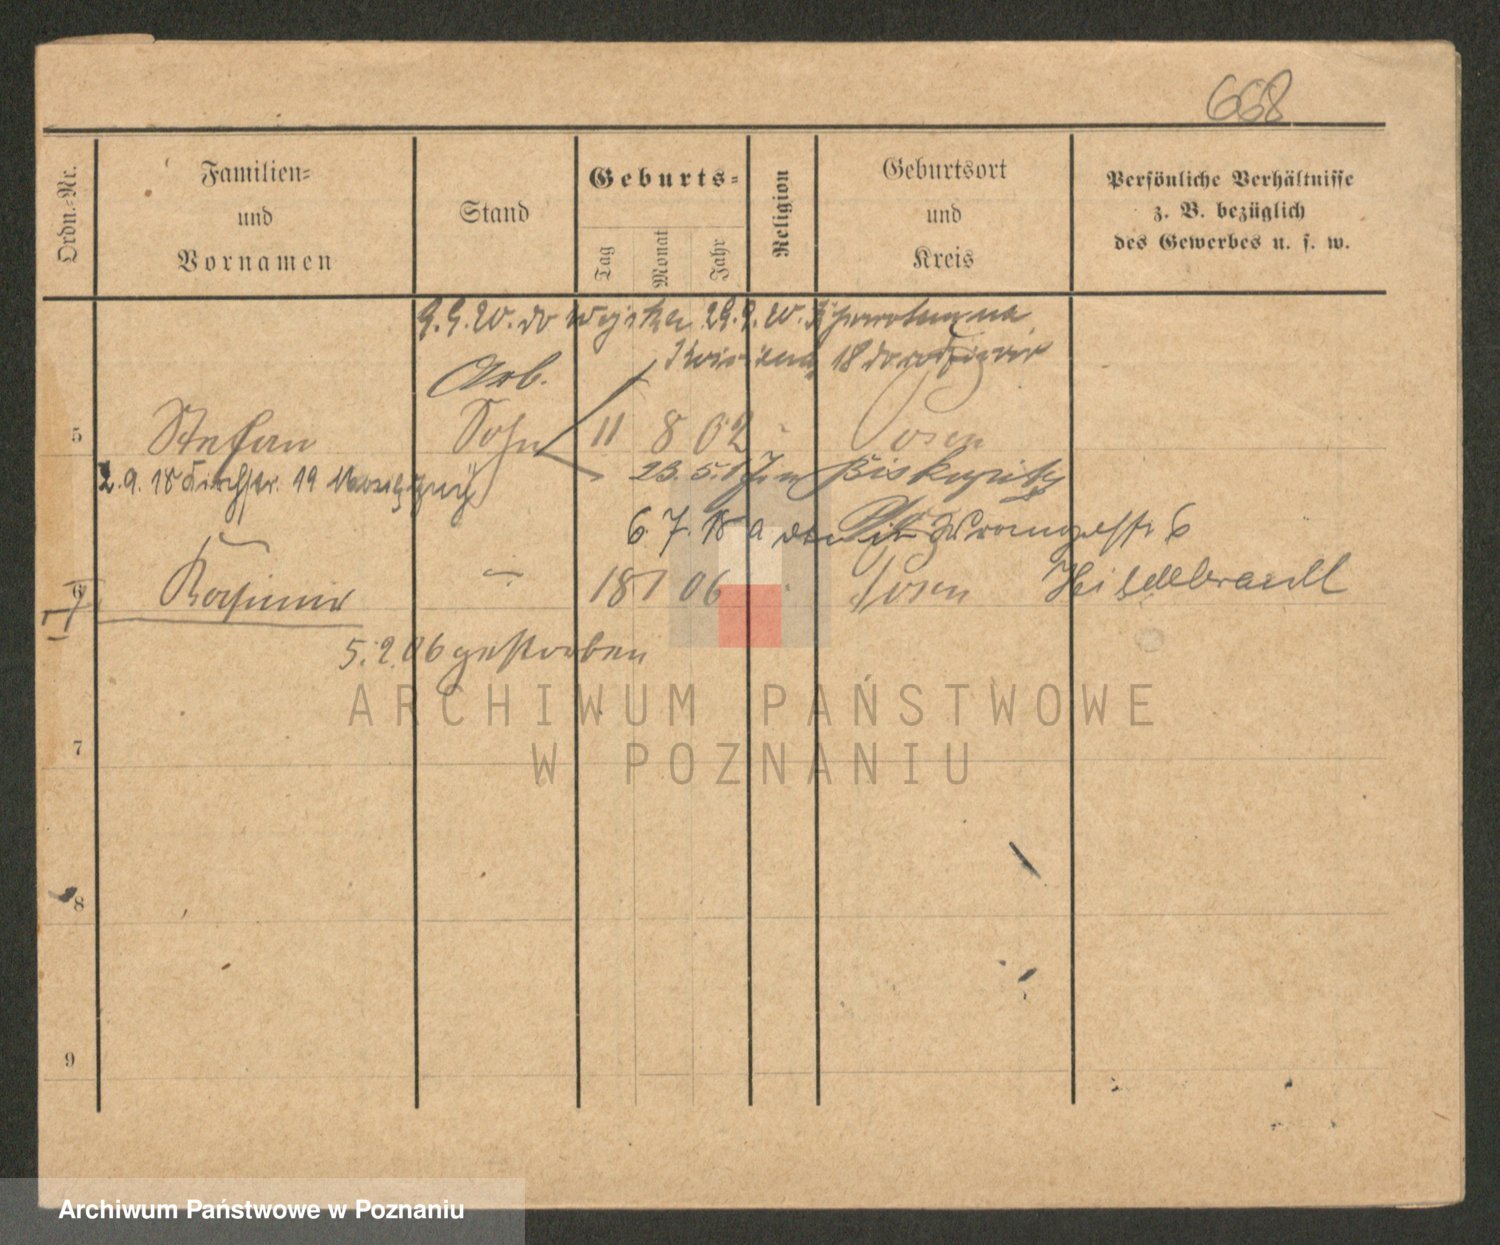 668
Ordn.-Nr.
Familien-
und
Vornamen
Stand
Geburts-
Tag
Monat
Jahr
Religion
Geburtsort
und
Kreis
Persönliche Verhältnisse
z. B. bezüglich
des Gewerbes u. s. w.
9.9.20. do wojska 29.9.20. z powrotem na
18 do rodziców
Arb.
5 Stefan Sohn 11 8 02 " Posen
2.9.18 Kirchstr. 19 23.5.17 in Biskupitz
6.7.18 a Wrangelstr 6
6 Kasimir " 18 1 06 " Posen Hildebrandt
5.2.06 gestorben
ARCHIWUM PAŃSTWOWE
W POZNANIU
7
8
9
Archiwum Państwowe w Poznaniu